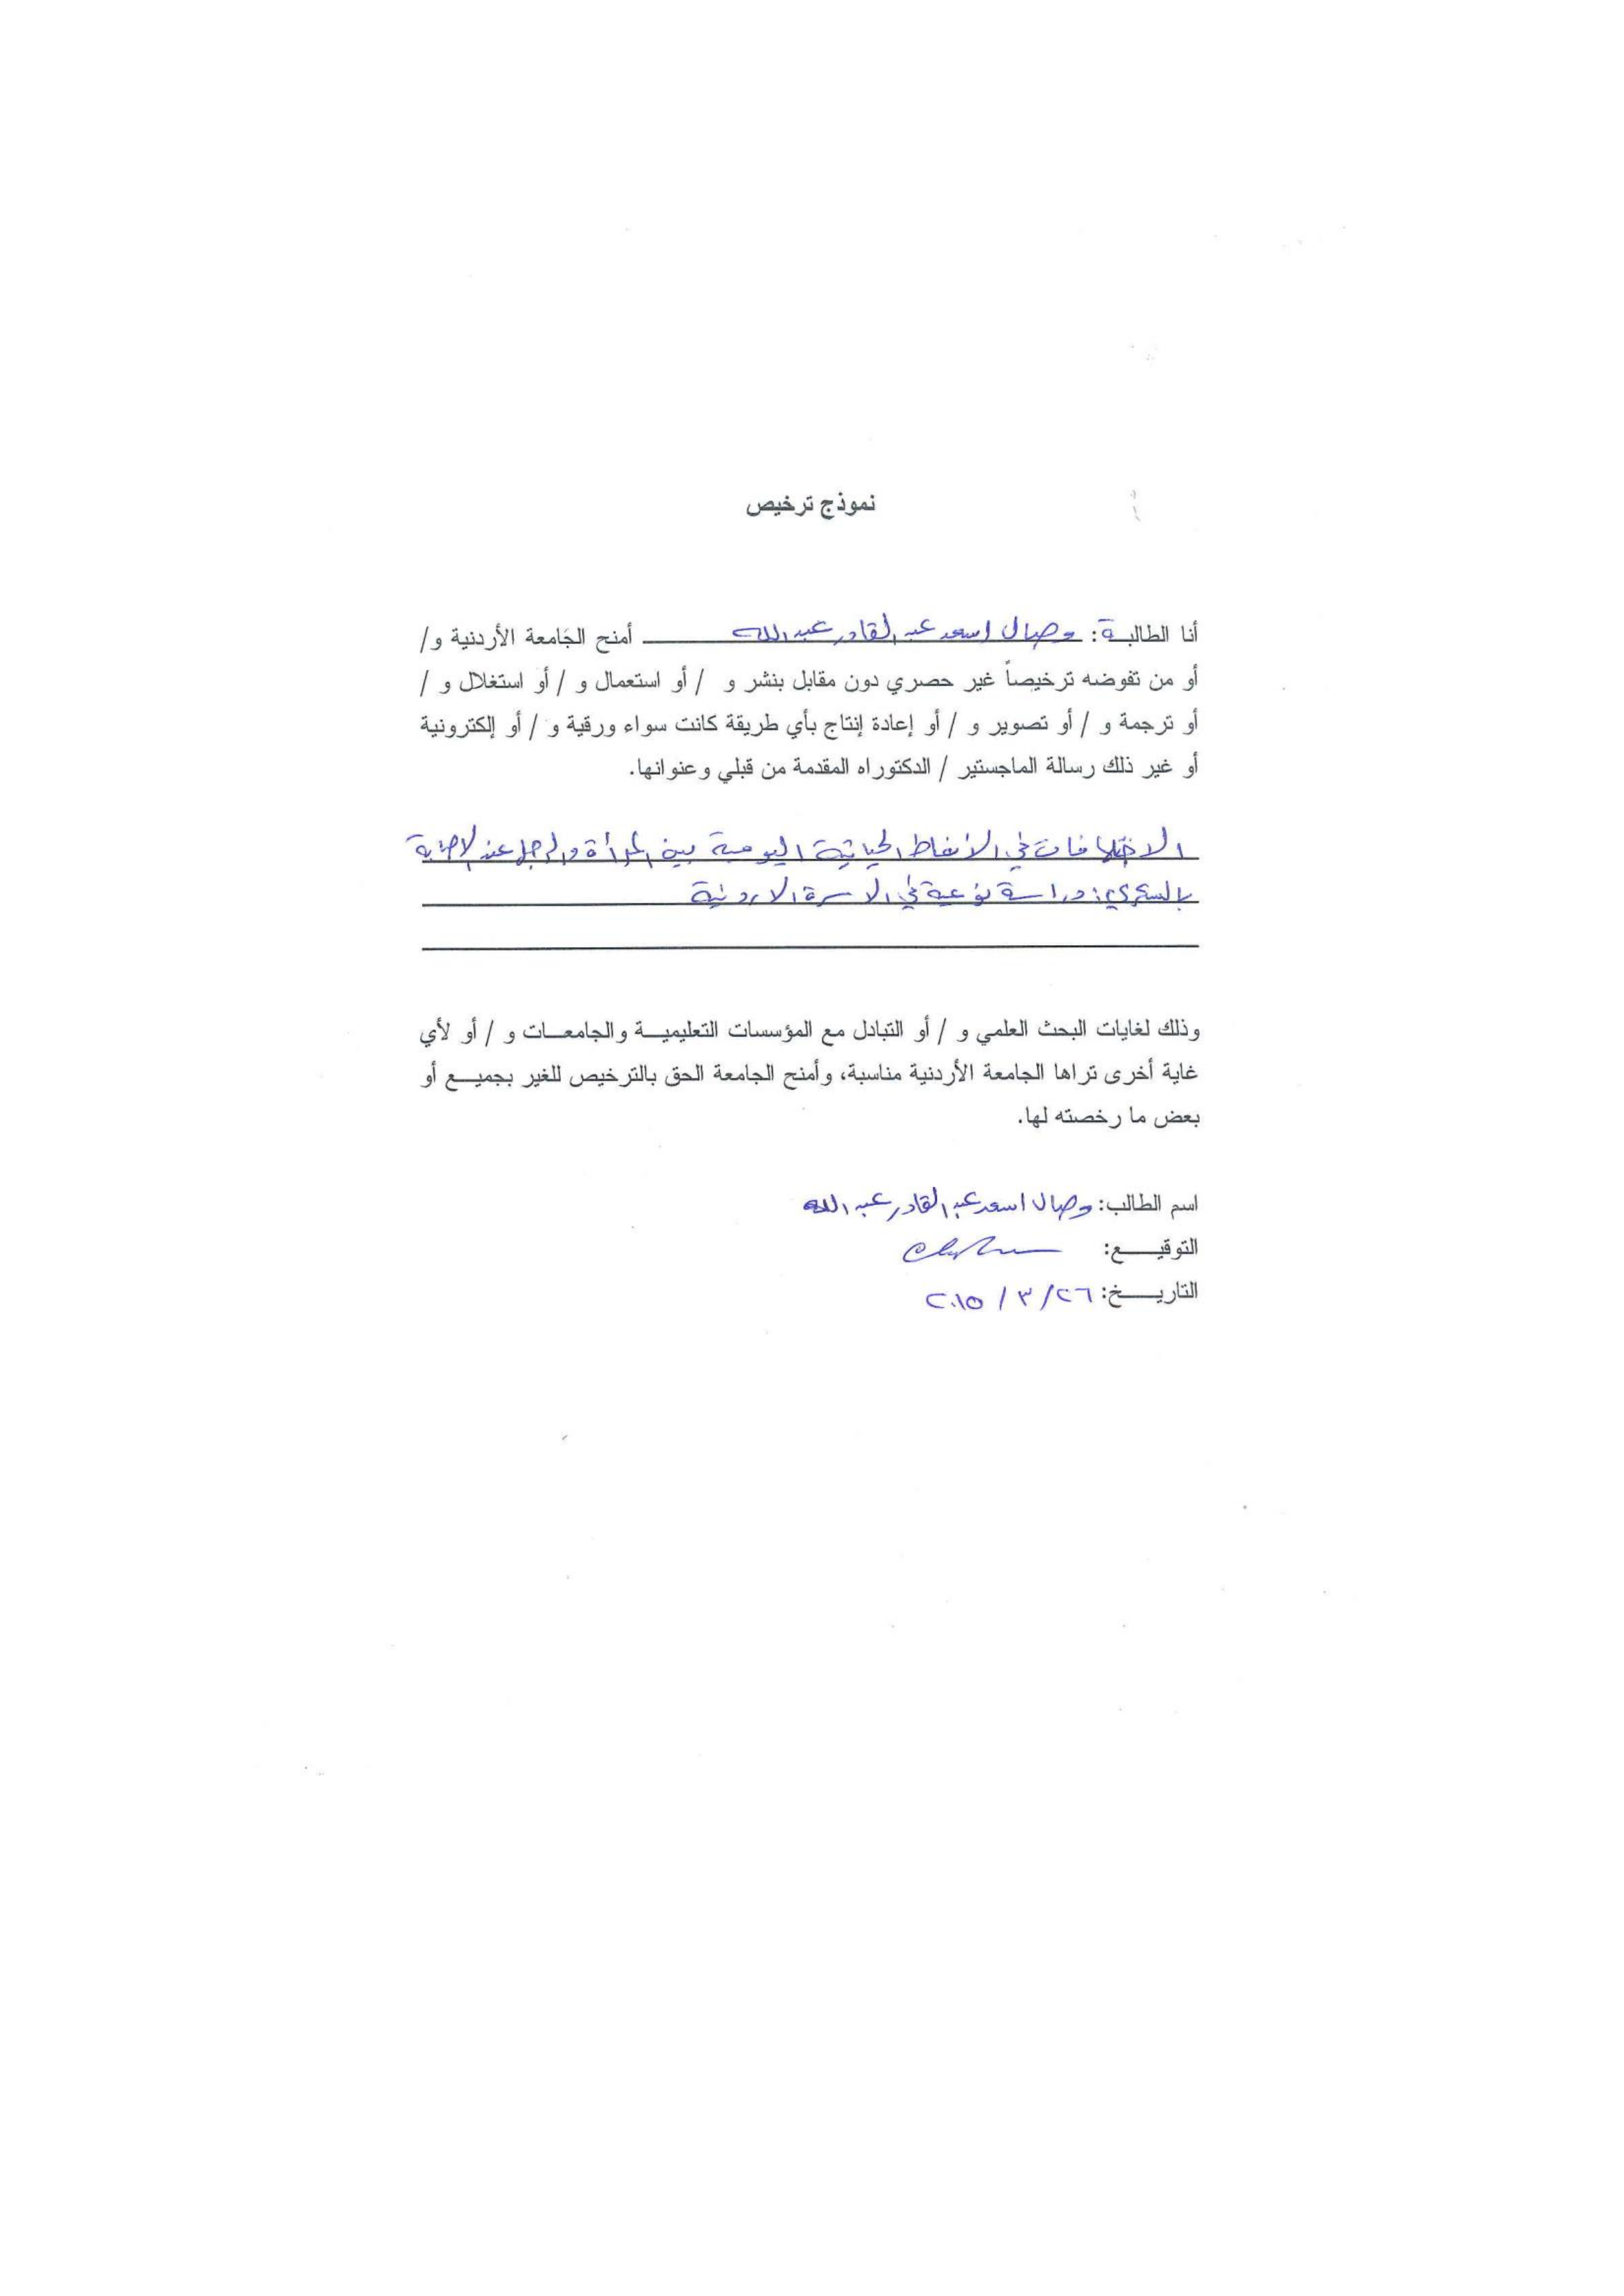 نموذج ترخيص
أنا الطالبـــة: وصال اسعد عبد القادر عبد الله أمنح الجامعة الأردنية و/
أو من تفوضه ترخيصاً غير حصري دون مقابل بنشر و / أو استعمال و / أو استغلال و /
أو ترجمة و / أو تصوير و / أو إعادة إنتاج بأي طريقة كانت سواء ورقية و / أو إلكترونية
أو غير ذلك رسالة الماجستير / الدكتوراه المقدمة من قبلي وعنوانها.
الاختلافات في الانماط الحياتية اليومية بين المرأة والرجل عند الاصابة
بالسكري: دراسة نوعية في الاسرة الاردنية
وذلك لغايات البحث العلمي و / أو التبادل مع المؤسسات التعليميـــة والجامعـــات و / أو لأي
غاية أخرى تراها الجامعة الأردنية مناسبة، وأمنح الجامعة الحق بالترخيص للغير بجميـــع أو
بعض ما رخصته لها.
اسم الطالب: وصال اسعد عبد القادر عبد الله
التوقيـــــع:
التاريـــــخ: ٢٦/ ٣ / ٢٠١٥